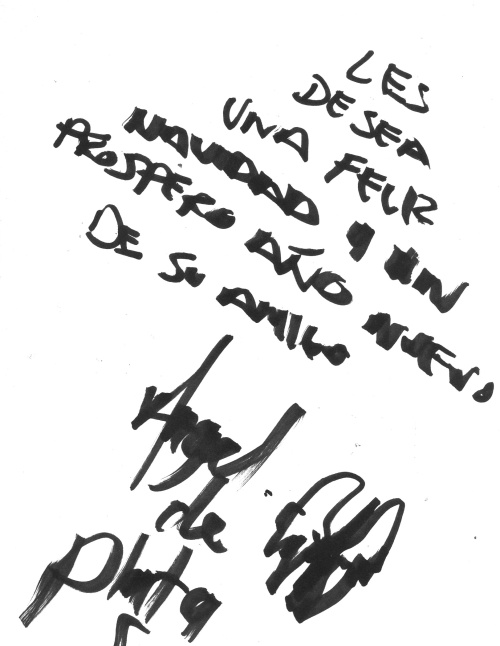 LES
DESEA
UNA FELIZ
NAVIDAD Y UN
PROSPERO AÑO NUEVO
DE SU AMIGO
Angel
de
Plata